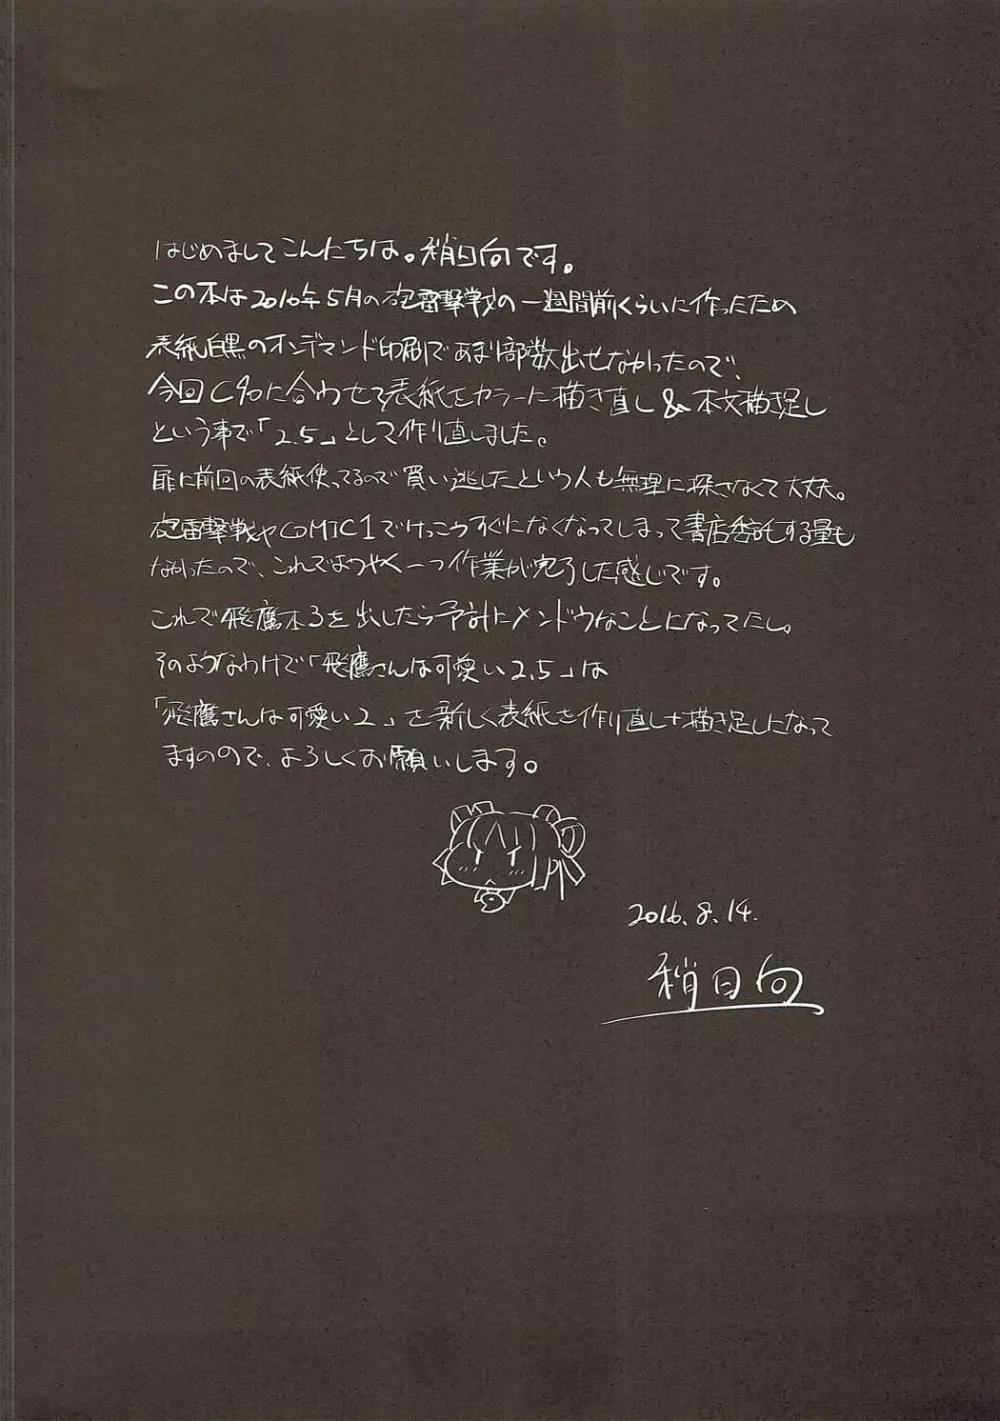 はじめましてこんにちは。稍日向です。
この本は2016年5月の砲雷撃戦の一週間前くらいに作ったため
表紙白黒のオンデマンド印刷であまり部数出せなかったので、
今回C90に合わせて表紙をカラーに描き直し&本文描き足し
という事で「2.5」として作り直しました。
扉に前回の表紙使ってるので買い逃したという人も無理に探さなくて大丈夫。
砲雷撃戦やCOMIC1でけっこうすぐになくなってしまって書店委託する量も
なかったので、これでようやく一つ作業が完了した感じです。
これで飛鷹本3を出したら余計にメンドウなことになってたし。
そのようなわけで「飛鷹さんは可愛い2.5」は
「飛鷹さんは可愛い2」を新しく表紙を作り直し+描き足しになって
ますのので、よろしくお願いします。
2016.8.14.
稍日向